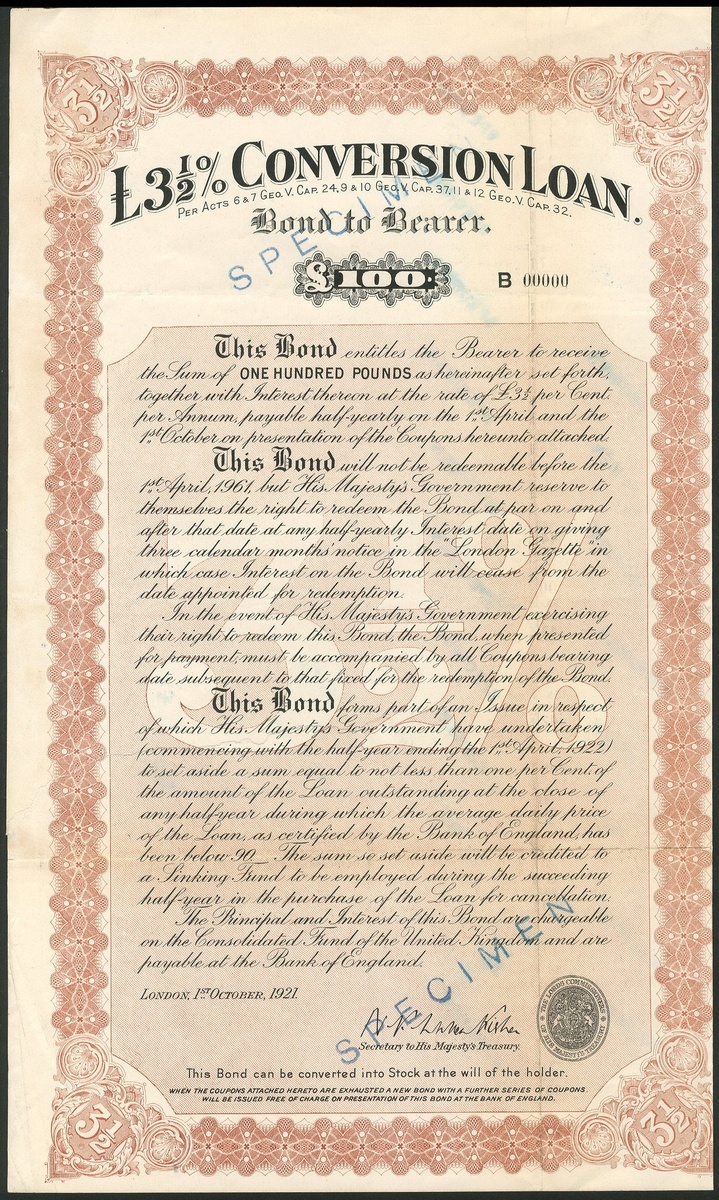 3½
3½
£3½% CONVERSION LOAN.
PER ACTS 6 & 7 GEO. V. CAP. 24, 9 & 10 GEO. V. CAP. 37, 11 & 12 GEO. V. CAP. 32.
Bond to Bearer.
SPECIMEN
£100
B 00000
This Bond entitles the Bearer to receive
the Sum of ONE HUNDRED POUNDS as hereinafter set forth,
together with Interest thereon at the rate of £3½ per Cent.
per Annum, payable half-yearly on the 1st April and the
1st October on presentation of the Coupons hereunto attached.
This Bond will not be redeemable before the
1st April, 1961, but His Majesty's Government reserve to
themselves the right to redeem the Bond at par on and
after that date at any half-yearly Interest date on giving
three calendar months' notice in the "London Gazette" in
which case Interest on the Bond will cease from the
date appointed for redemption.
In the event of His Majesty's Government exercising
their right to redeem this Bond, the Bond, when presented
for payment, must be accompanied by all Coupons bearing
date subsequent to that fixed for the redemption of the Bond.
This Bond forms part of an Issue in respect
of which His Majesty's Government have undertaken
(commencing with the half-year ending the 1st April, 1922)
to set aside a sum equal to not less than one per Cent. of
the amount of the Loan outstanding at the close of
any half-year during which the average daily price
of the Loan, as certified by the Bank of England, has
been below 90_ The sum so set aside will be credited to
a Sinking Fund to be employed during the succeeding
half-year in the purchase of the Loan for cancellation.
The Principal and Interest of this Bond are chargeable
on the Consolidated Fund of the United Kingdom and are
payable at the Bank of England.
3½%
LONDON, 1ST OCTOBER, 1921.
SPECIMEN
Secretary to His Majesty's Treasury.
THE LORDS COMMISSIONERS
OF HIS MAJESTY'S TREASURY
This Bond can be converted into Stock at the will of the holder.
WHEN THE COUPONS ATTACHED HERETO ARE EXHAUSTED A NEW BOND WITH A FURTHER SERIES OF COUPONS
WILL BE ISSUED FREE OF CHARGE ON PRESENTATION OF THIS BOND AT THE BANK OF ENGLAND.
3½
3½